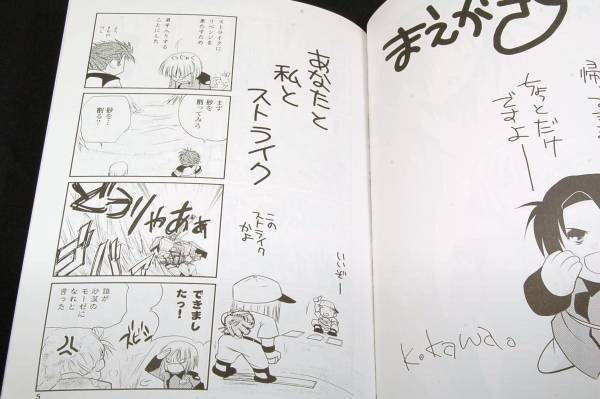 ストライクに
リベンジを
果たすため
弟子入りする
ことにした
まず
砂を
割ってみろ
砂を…
割る？
ズモリャあぁぁ
できまし
たっ！
誰が
砂漠の
モーゼに
なれと
言った
あなたと
私と
ストライク
この
ストライク
かよ
いいぞー
5
まえがき
ちょっとだけ
ですよー
K.Kawa.